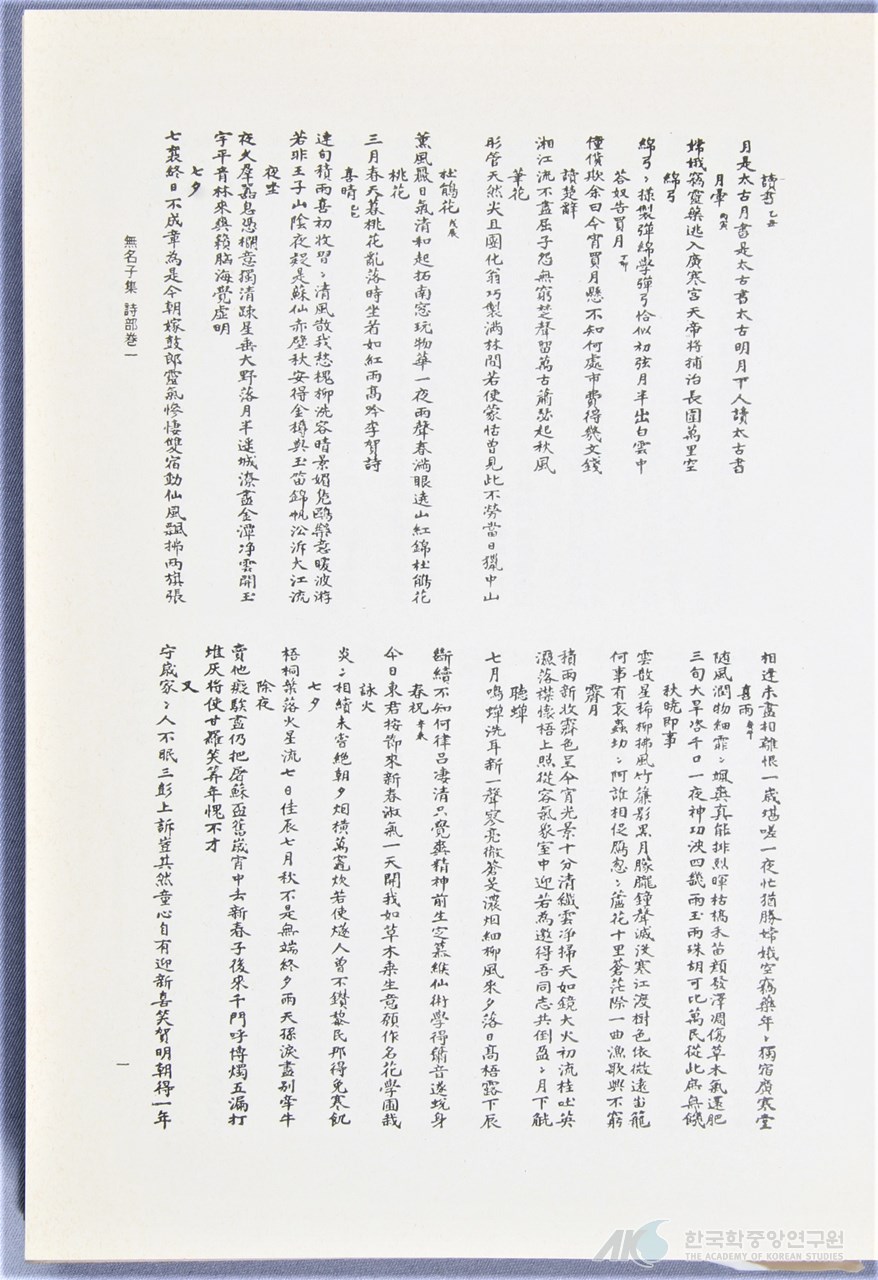 讀書 乙丑
月是太古月書是太古書太古明月下人讀太古書
月暈 丙寅
嫦娥竊靈藥逃入廣寒宮天帝將捕治長圍萬里空
綿弓
綿弓ミ樣製彈綿學彈弓恰似初弦月半出白雲中
答奴告買月 丁卯
僮僕欺余曰今宵買月懸不知何處市費得幾文錢
讀楚辭
湘江流不盡屈子怨無窮楚聲留萬古蕭瑟起秋風
筆花
彤管天然尖且圓化翁巧製滿林間若使蒙恬曾見此不勞當日獵中山
杜鵑花 戊辰
薰風飛日氣清和起拓南窓玩物華一夜雨聲春滿眼遠山紅錦杜鵑花
桃花
三月春天暮桃花亂落時坐者如紅雨高吟李賀詩
喜晴 己巳
連旬積雨喜初收習ミ清風散我愁槐柳洗容晴景媚鳧鷗樂意暖波游
若非王子山陰夜疑是蘇仙赤壁秋安得金樽與玉笛錦帆泝大江流
夜坐
夜久群囂息憑欄意獨清疎星垂大野落月半遙城潦盡金潭净雲開玉
宇平青林來爽籟腦海覺虛明
七夕
七襄終日不成章為是今朝嫁鼓郎靈氣慘悽雙宿動仙風飄拂兩旗張
無名子集 詩部卷一
相逢未盡相離恨一歲堪嗟一夜忙猶勝嫦娥空竊藥年ミ獨宿廣寒堂
喜雨 庚午
隨風潤物細霏ミ颯爽真能排烈暉枯槁禾苗顏發澤凋傷草木氣還肥
三旬大旱咨千口一夜神功浹四畿雨玉雨珠胡可比萬民從此庶無饑
秋曉即事
雲散星稀柳拂風竹簾影黑月朦朧鐘聲滅沒寒江渡樹色依微遠岀籠
何事有哀蟲切ミ阿誰相促雁忽ミ蘆花十里蒼茫際一曲漁歌興不窮
霽月
積雨新收霽色呈今宵光景十分清纖雲净掃天如鏡大火初流桂吐英
濕落襟懷梧上照從容氣象室中迎若為邀得吾同志共倒盈ミ月下觥
聽蟬
七月鳴蟬洗耳新一聲寥亮徹蒼旻濃烟細柳風來夕落日高梧露下辰
斷續不知何律呂凄清只覺爽精神前生定慕緱仙術學得簫音遂蛻身
春祝 辛未
今日東君按節來新春淑氣一天開我如草木乘生意願作名花學圃栽
詠火
炎ミ相續未甞絕朝夕烟橫萬竈炊若使燧人曾不鑽黎民那得免寒飢
七夕
梧桐葉落火星流七日佳辰七月秋不是無端終夕雨天孫淚盡別牽牛
除夜
賣他癡騃盡仍把屠蘇盃舊歲宵中去新春子後來千門呼博燭五漏打
堆灰將使甘羅笑筭年愧不才
又
守歲家ミ人不眠三彭上訴豈其然童心自有迎新喜笑賀明朝得一年
一
AKS 한국학중앙연구원
THE ACADEMY OF KOREAN STUDIES